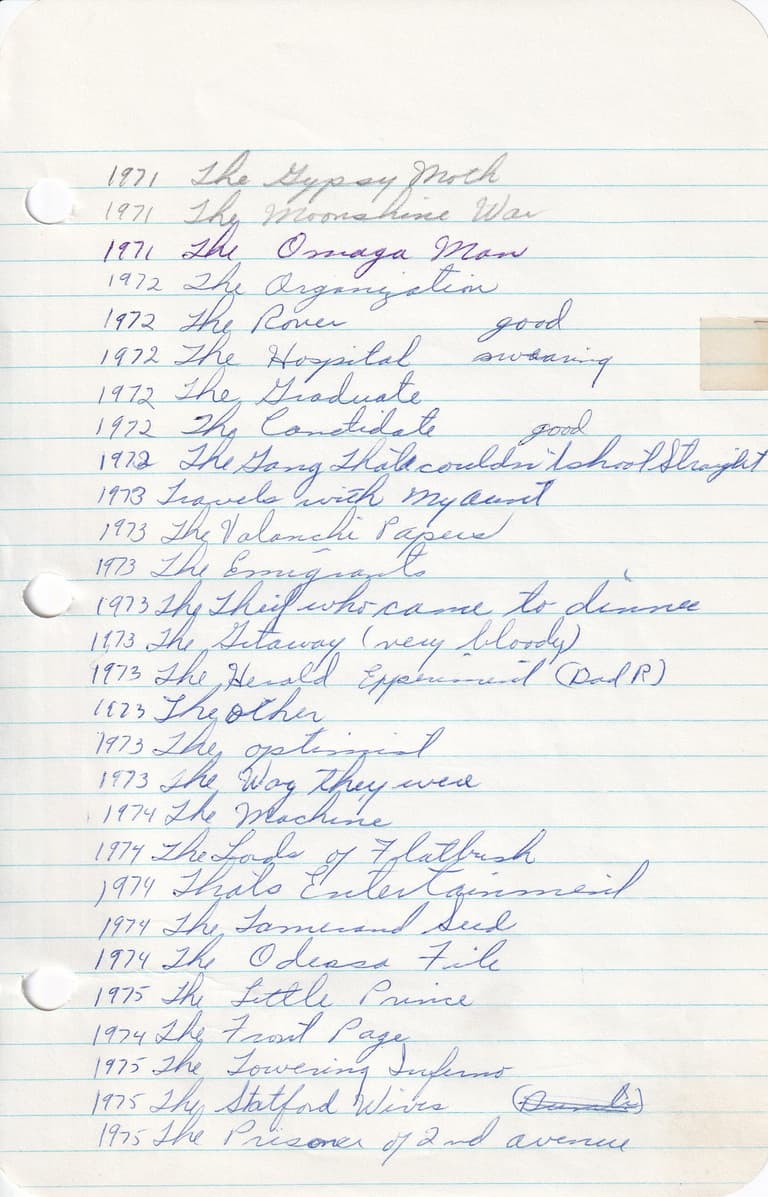 1971 The Gypsy Moth
1971 The Moonshine War
1971 The Omaga Man
1972 The Organization
1972 The Rover good
1972 The Hospital swearing
1972 The Graduate
1972 The Candidate good
1972 The Gang That couldn't shoot Straight
1973 Travels with My aunt
1973 The Valanchi Papers
1973 The Emigrants
1973 The Theif who came to dinner
1973 The Getaway (very bloody)
1973 The Herald Experiment (Dad R)
1973 The other
1973 The optimist
1973 The Way they were
1974 The Machine
1974 The Lords of Flatbush
1974 Thats Entertainment
1974 The Tamerand Seed
1974 The Odessa File
1975 The Little Prince
1974 The Front Page
1975 The Towering Inferno
1975 The Statford Wives
1975 The Prisoner of 2nd avenue